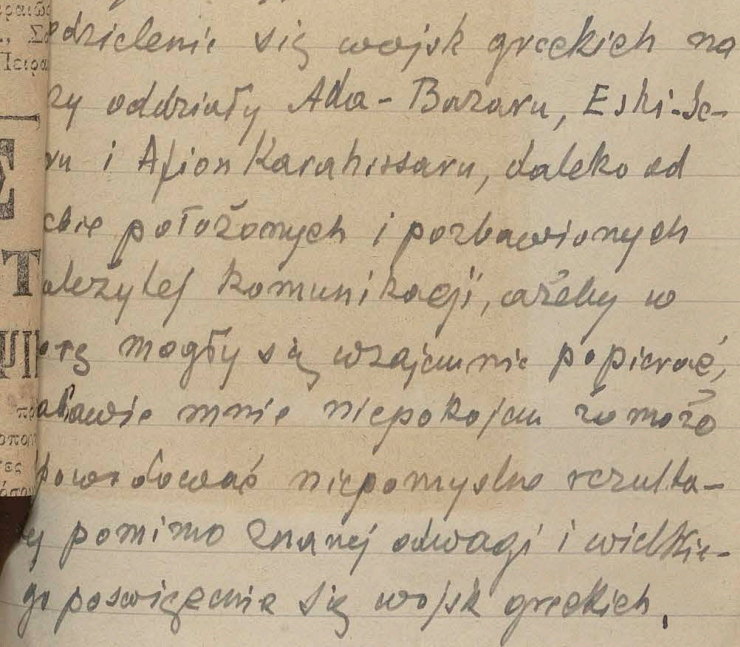 edzielenie się wojsk greckich na
zy oddziały Ada-Bazaru, Eski-Se-
ru i Afion Karahissaru, daleko od
ebie położonych i pozbawionych
ależytej komunikacji, ażeby w
orę mogły się wzajemnie popierać,
abawie mnie niepokojem że może
powodować niepomyslne rezulta-
ty pomimo znanej odwagi i wielkie-
go poswięcenie się wojsk greckich.